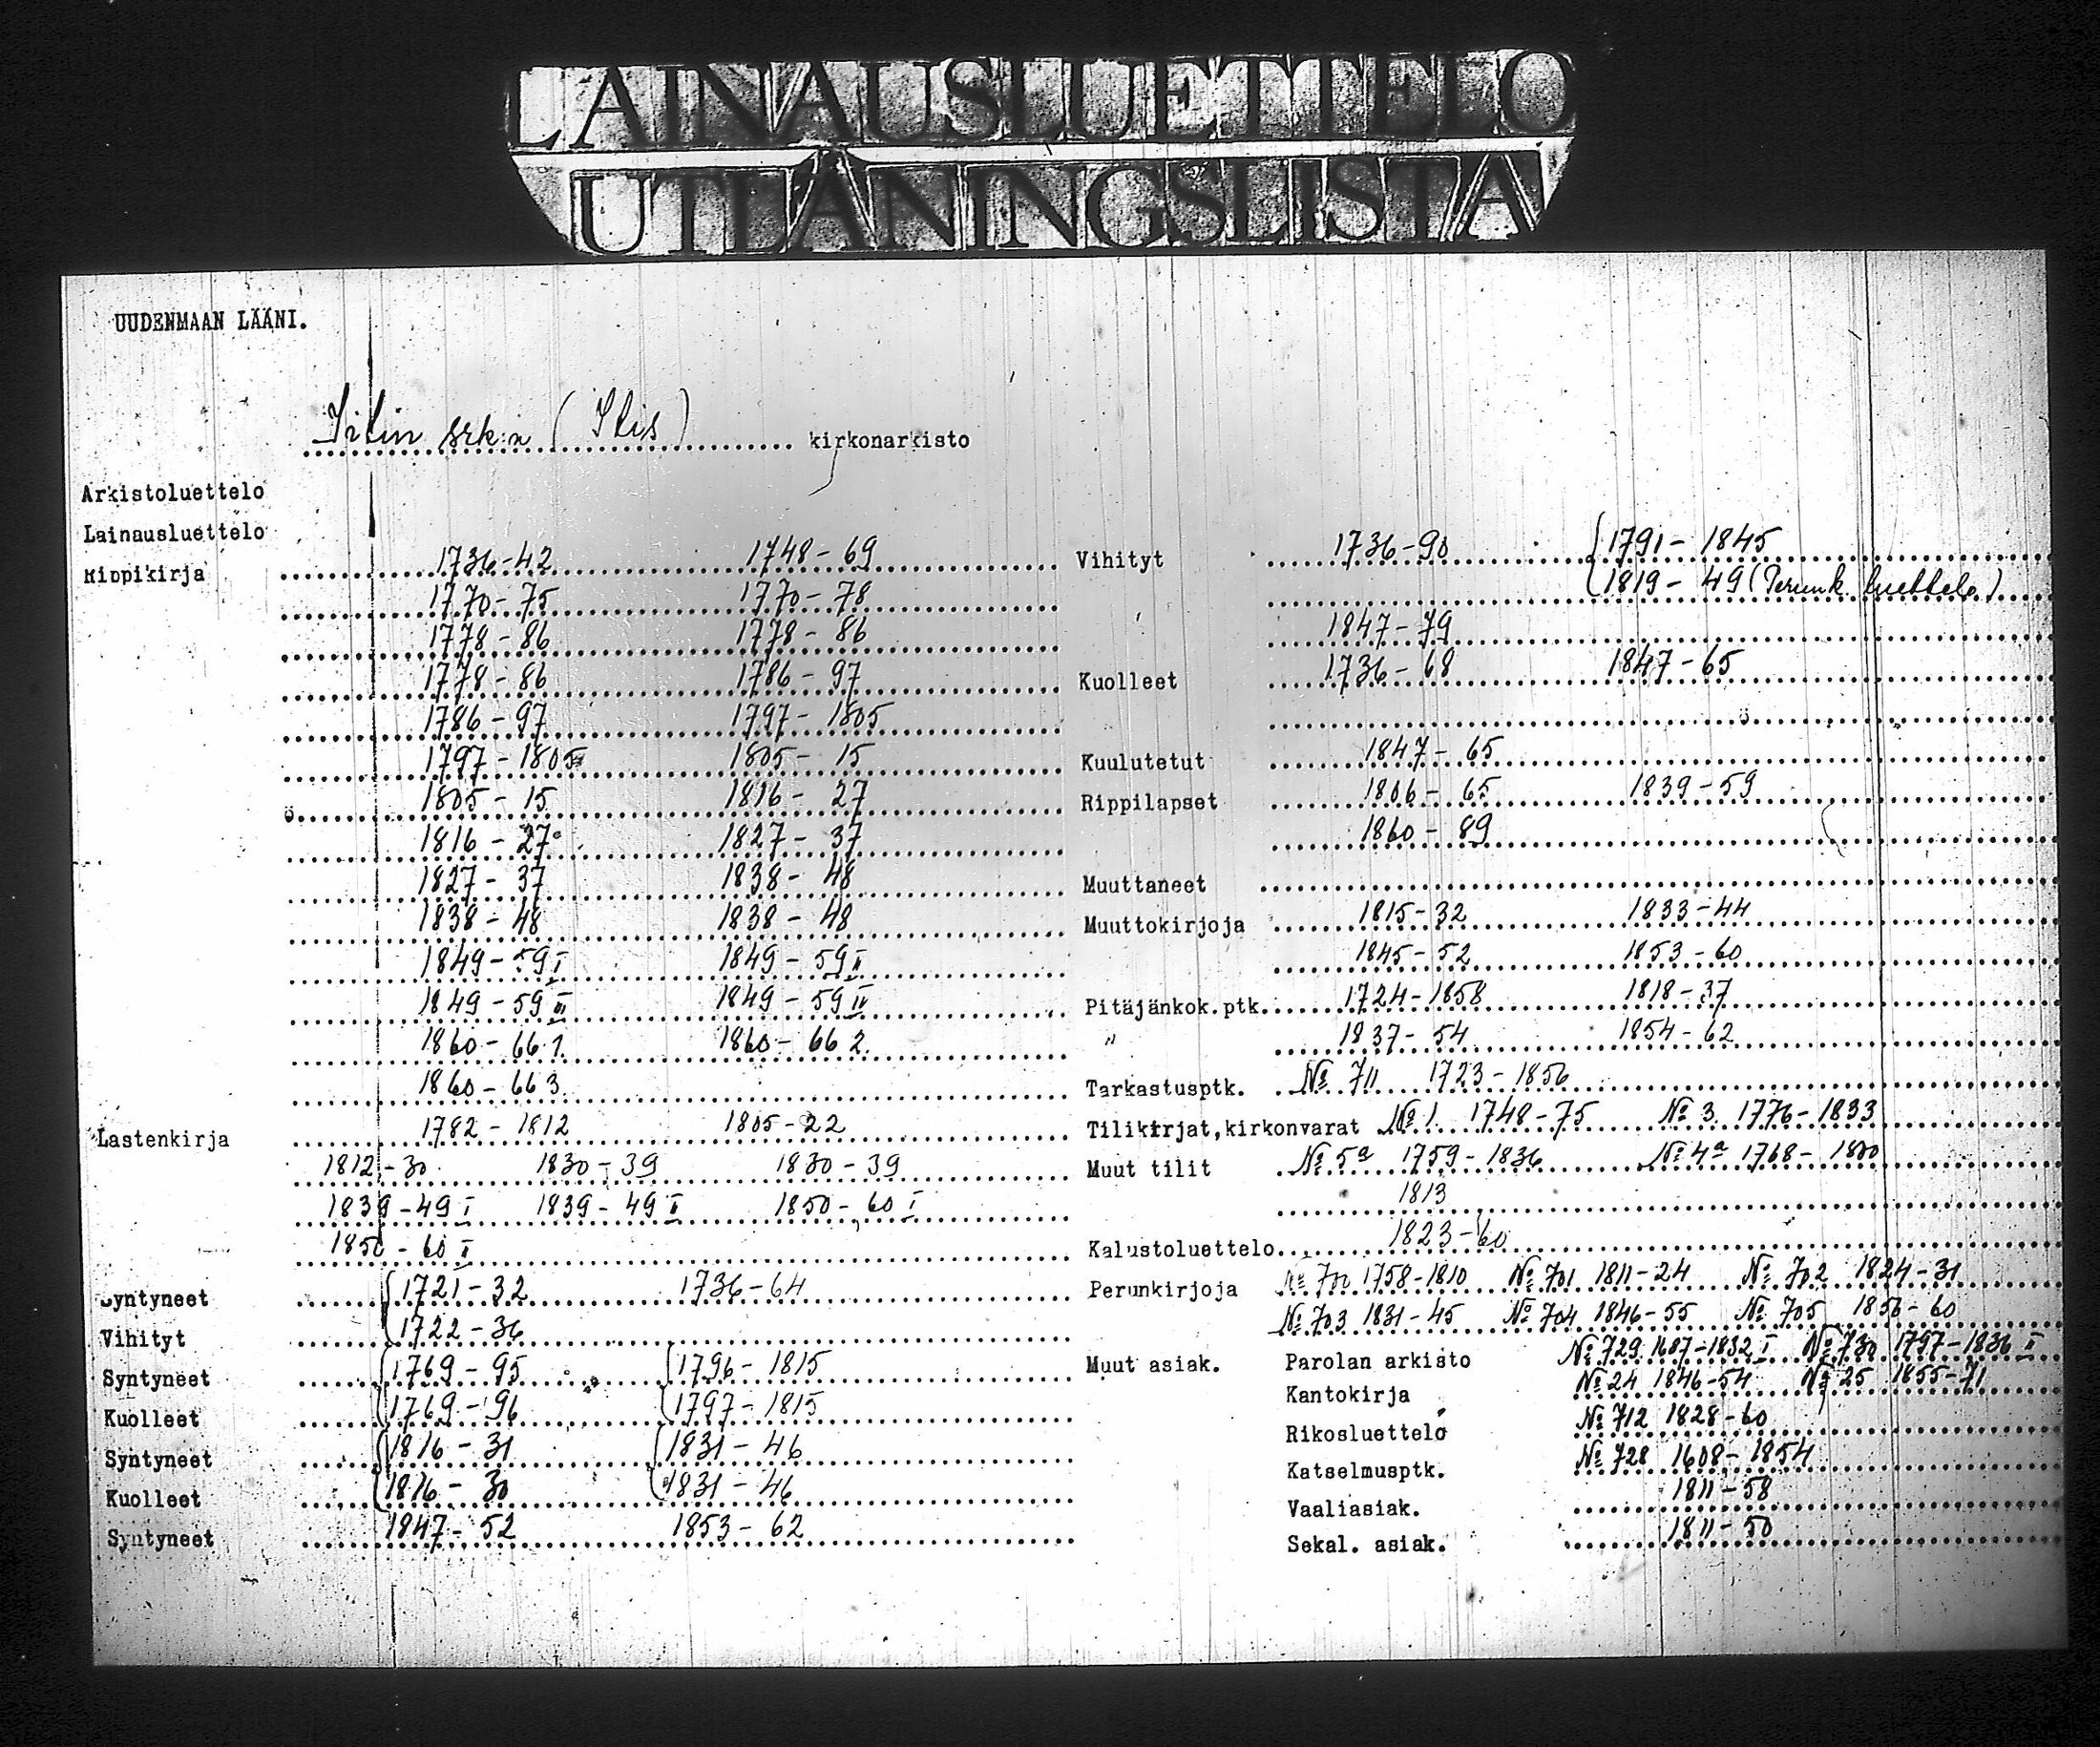 LAINAUSLUETTELO
UTLÅNINGSLISTA
UUDENMAAN LÄÄNI.
Iitin srk:n (Itis) kirkonarkisto
Arkistoluettelo
Lainausluettelo
Rippikirja 1736-42 1748-69
1770-75 1770-78
1778-86 1778-86
1778-86 1786-97
1786-97 1797-1805
1797-1805 1805-15
1805-15 1816-27
1816-27 1827-37
1827-37 1838-48
1838-48 1838-48
1849-59 I 1849-59 II
1849-59 III 1849-59 IV
1860-66 1. 1860-66 2.
1860-66 3.
Lastenkirja 1782-1812 1805-22
1812-30 1830-39 1830-39
1839-49 I 1839-49 II 1850-60 I
1850-60 II
Syntyneet 1721-32 1736-64
Vihityt 1722-36
Syntyneet 1769-95 1796-1815
Kuolleet 1769-96 1797-1815
Syntyneet 1816-31 1831-46
Kuolleet 1816-30 1831-46
Syntyneet 1847-52 1853-62
Vihityt 1736-90 1791-1845
1819-49 (Perunk. luettelo)
1847-79
Kuolleet 1736-68 1847-65
Kuulutetut 1847-65
Rippilapset 1806-65 1839-59
1860-89
Muuttaneet
Muuttokirjoja 1815-32 1833-44
1845-52 1853-60
Pitäjänkok.ptk. 1724-1858 1818-37
" 1837-54 1854-62
Tarkastusptk. № 711 1723-1856
Tilikirjat,kirkonvarat № 1. 1748-75 № 3. 1776-1833
Muut tilit № 5a 1759-1836 № 4a 1768-1800
1813
Kalustoluettelo 1823-60
Perunkirjoja № 700 1758-1810 № 701 1811-24 № 702 1824-31
№ 703 1831-45 № 704 1846-55 № 705 1856-60
Muut asiak. Parolan arkisto № 729 1687-1832 I № 730 1797-1836 II
Kantokirja № 24 1846-54 № 25 1855-71
Rikosluettelo № 712 1828-60
Katselmusptk. № 728 1608-1854
Vaaliasiak. 1811-58
Sekal. asiak. 1811-50